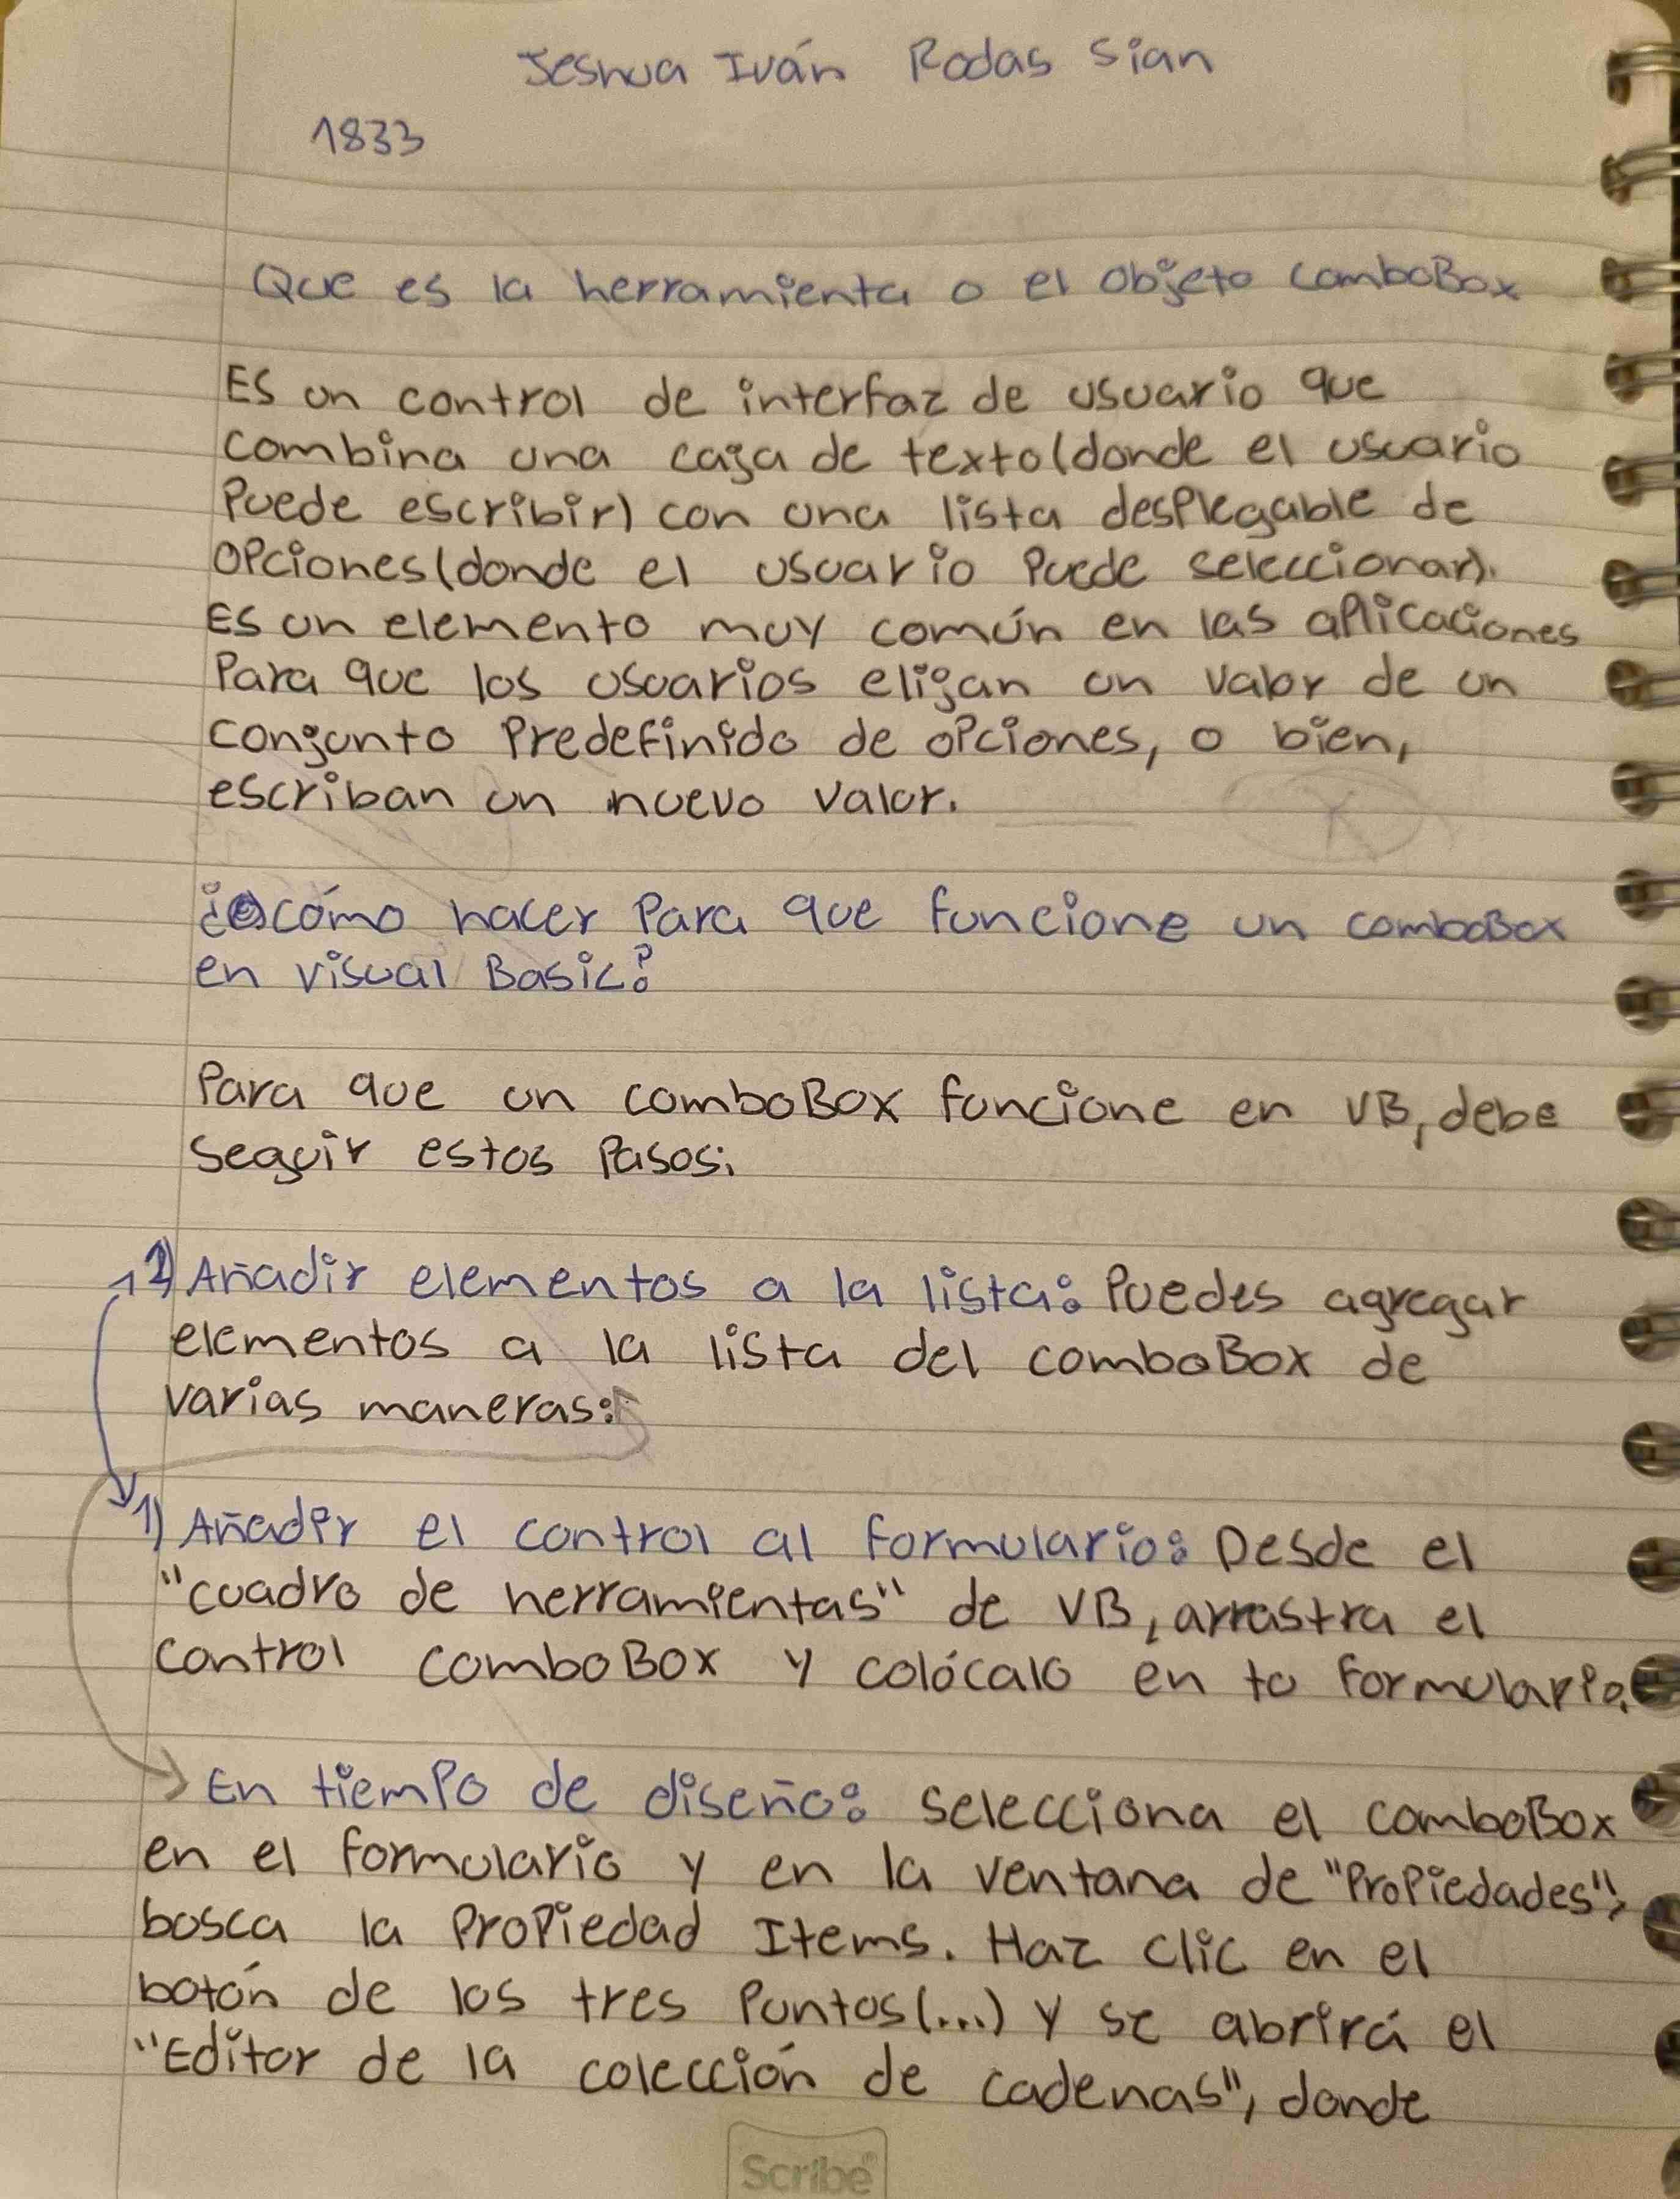 Jeshua Iván Rodas Sian
1833
Que es la herramienta o el objeto comboBox
Es un control de interfaz de usuario que
combina una caja de texto (donde el usuario
Puede escribir) con una lista desplegable de
opciones (donde el usuario puede seleccionar).
Es un elemento muy común en las aplicaciones
Para que los usuarios elijan un valor de un
conjunto Predefinido de opciones, o bien,
escriban un nuevo valor.
¿cómo hacer Para que funcione un comboBox
en visual Basic?
Para que un comboBox funcione en VB, debe
seguir estos Pasos:
2) Añadir elementos a la lista: Puedes agregar
elementos a la lista del comboBox de
varias maneras:
1) Añadir el control al formulario: Desde el
"cuadro de herramientas" de VB, arrastra el
control comboBox y colócalo en tu formulario.
En tiempo de diseño: selecciona el comboBox
en el formulario y en la ventana de "Propiedades",
busca la Propiedad Items. Haz clic en el
botón de los tres Puntos (...) y se abrirá el
"Editor de la colección de cadenas", donde
Scribe